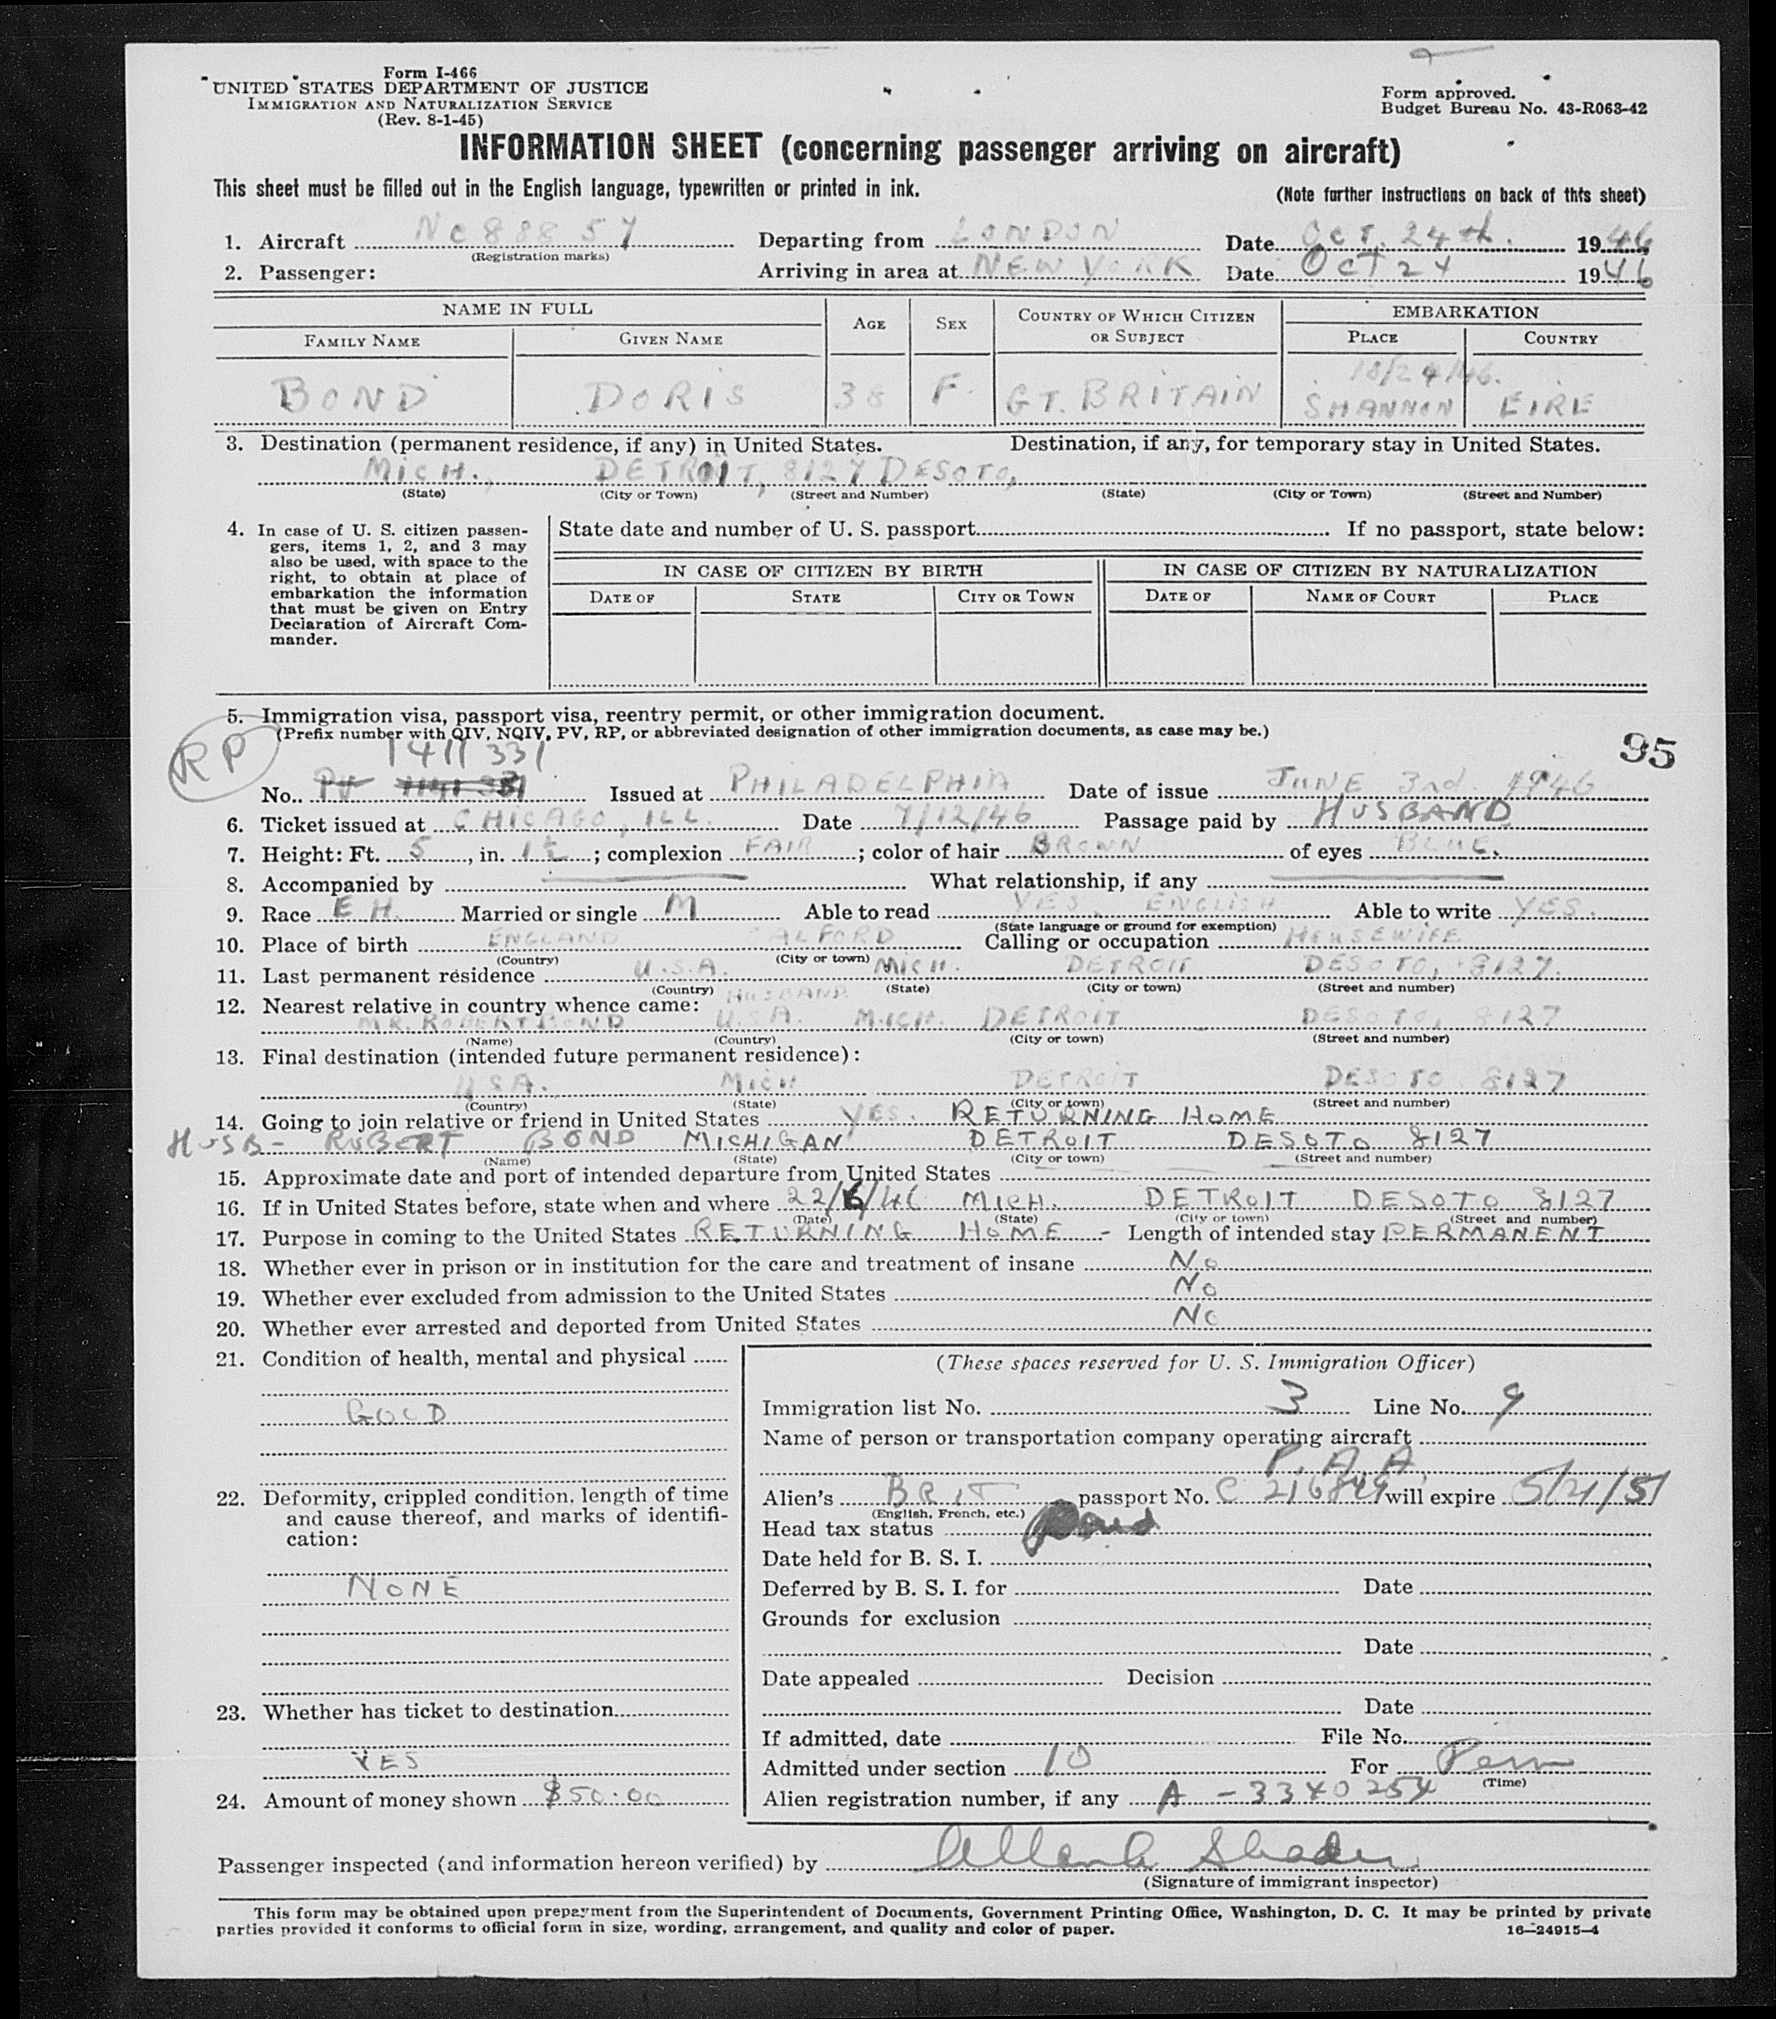 Form I-466
UNITED STATES DEPARTMENT OF JUSTICE
IMMIGRATION AND NATURALIZATION SERVICE
(Rev. 8-1-45)
Form approved.
Budget Bureau No. 43-R063-42
INFORMATION SHEET (concerning passenger arriving on aircraft)
This sheet must be filled out in the English language, typewritten or printed in ink.
(Note further instructions on back of this sheet)
1. Aircraft NC 88857 Departing from LONDON Date OCT. 24th. 1946
(Registration marks)
2. Passenger: Arriving in area at NEW YORK Date OCT 24 1946
NAME IN FULL AGE SEX COUNTRY OF WHICH CITIZEN OR SUBJECT EMBARKATION
FAMILY NAME GIVEN NAME PLACE COUNTRY
10/24/46.
BOND DORIS 38 F. GT. BRITAIN SHANNON EIRE
3. Destination (permanent residence, if any) in United States. Destination, if any, for temporary stay in United States.
MICH., DETROIT, 8127 DESOTO,
(State) (City or Town) (Street and Number) (State) (City or Town) (Street and Number)
4. In case of U. S. citizen passengers, items 1, 2, and 3 may also be used, with space to the right, to obtain at place of embarkation the information that must be given on Entry Declaration of Aircraft Commander.
State date and number of U. S. passport If no passport, state below:
IN CASE OF CITIZEN BY BIRTH IN CASE OF CITIZEN BY NATURALIZATION
DATE OF STATE CITY OR TOWN DATE OF NAME OF COURT PLACE
5. Immigration visa, passport visa, reentry permit, or other immigration document.
(Prefix number with QIV, NQIV, PV, RP, or abbreviated designation of other immigration documents, as case may be.)
RP 1411331 95
No. PV Issued at PHILADELPHIA Date of issue JUNE 3rd. 1946
6. Ticket issued at CHICAGO, ILL. Date 7/12/46 Passage paid by HUSBAND
7. Height: Ft. 5, in. 1½; complexion FAIR; color of hair BROWN of eyes BLUE.
8. Accompanied by What relationship, if any
9. Race EH. Married or single M Able to read YES. ENGLISH Able to write YES.
(State language or ground for exemption)
10. Place of birth ENGLAND SALFORD Calling or occupation HOUSEWIFE
(Country) (City or town)
11. Last permanent residence U.S.A. MICH. DETROIT DESOTO, 8127.
(Country) (State) (City or town) (Street and number)
12. Nearest relative in country whence came: HUSBAND
MR. ROBERT BOND U.S.A. MICH. DETROIT DESOTO, 8127
(Name) (Country) (City or town) (Street and number)
13. Final destination (intended future permanent residence):
U.S.A. MICH DETROIT DESOTO 8127
(Country) (State) (City or town) (Street and number)
14. Going to join relative or friend in United States YES. RETURNING HOME
HUSB- ROBERT BOND MICHIGAN DETROIT DESOTO 8127
(Name) (State) (City or town) (Street and number)
15. Approximate date and port of intended departure from United States
16. If in United States before, state when and where 22/6/46 MICH. DETROIT DESOTO 8127
(Date) (State) (City or town) (Street and number)
17. Purpose in coming to the United States RETURNING HOME - Length of intended stay PERMANENT
18. Whether ever in prison or in institution for the care and treatment of insane No
19. Whether ever excluded from admission to the United States No
20. Whether ever arrested and deported from United States No
21. Condition of health, mental and physical
GOOD
22. Deformity, crippled condition, length of time and cause thereof, and marks of identification:
NONE
23. Whether has ticket to destination
YES
24. Amount of money shown $50.00
(These spaces reserved for U. S. Immigration Officer)
Immigration list No. 3 Line No. 9
Name of person or transportation company operating aircraft
P. A. A.
Alien's BRIT passport No. C 216849 will expire 5/21/51
(English, French, etc.)
Head tax status Paid
Date held for B. S. I.
Deferred by B. S. I. for Date
Grounds for exclusion
Date
Date appealed Decision
Date
If admitted, date File No.
Admitted under section 10 For Perm
(Time)
Alien registration number, if any A-3340254
Passenger inspected (and information hereon verified) by
(Signature of immigrant inspector)
This form may be obtained upon prepayment from the Superintendent of Documents, Government Printing Office, Washington, D. C. It may be printed by private
parties provided it conforms to official form in size, wording, arrangement, and quality and color of paper. 16—24915-4